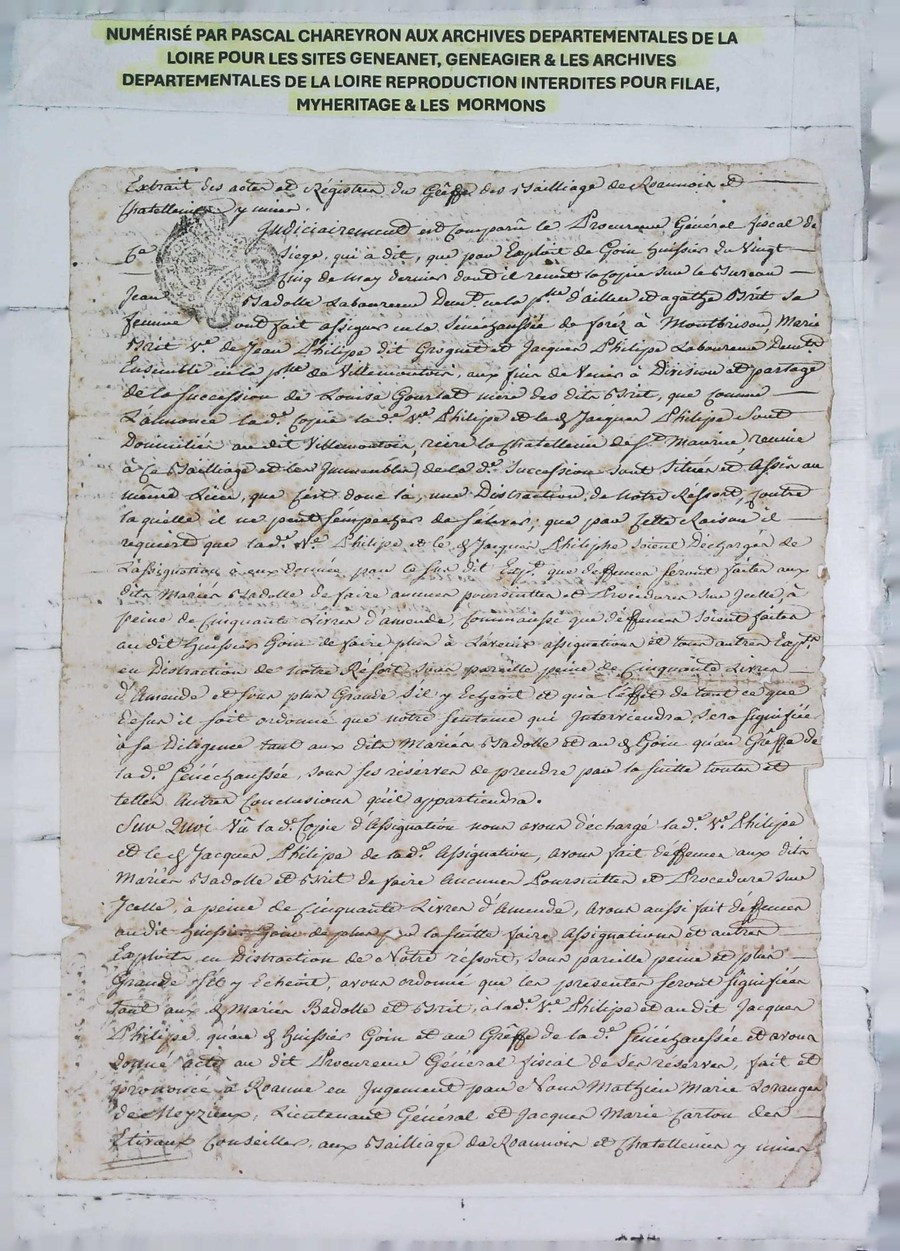 NUMÉRISÉ PAR PASCAL CHAREYRON AUX ARCHIVES DEPARTEMENTALES DE LA
LOIRE POUR LES SITES GENEANET, GENEAGIER & LES ARCHIVES
DEPARTEMENTALES DE LA LOIRE REPRODUCTION INTERDITES POUR FILAE,
MYHERITAGE & LES MORMONS
Extrait des actes et Régistres du Gêffe des Bailliage de Roannois et
Chatellenies y unies.
Judiciairement est Comparû le Procureur Général fiscal de
Ce Siege, qui à dit, que par Exploit de Goin huissier du Vingt
Cinq de may dernier dont il remet la Copie sur le Bureau
Jean Badolle Laboureur Demt. en la psse d'ailleu et agathe Brit sa
femme ont fait assigner en la Sénéchaussée de foréz à Montbrison, Marie
Brit Ve. de Jean Philipe dit Groguet et Jacques Philipe Laboureur Demts.
Ensemble en la psse de Villemontois, aux fins de Venir à Division et partage
de la succession de Louise Gourlat mère des dits Brit, que comme
L'annonce la de. Copie la de. Ve. Philipe et le S Jacques Philipe sont
Domiciliés au dit Villemontois, rière la Chatellenie de St. Maurice reunie
à Ce Bailliage et les Immeubles de la de. Succession sont Situés et Assis au
même Lieu, que C'est donc là, une Distraction, de notre Ressort, contre
laquelle il ne peut s'empecher de s'élever; que par Cette Raison il
requiert que la de. Ve. Philipe et le S Jacques Philiphe soient Déchargés de
L'assignation à eux donnée par le sus dit Expt. que deffenses seront faites aux
dits Mariés Badolle de faire aucunes poursuittes et Procédures sur Icelle, à
peine de Cinquante Livres d'amende, Comm'aussi que deffenses soient faites
au dit huissier Goin de faire plus à L'avenir assignation et tous autres Expts.
en Distraction de notre Réssort sous pareille peine de Cinquante Livres
d'Amende et sous plus Grande s'il y Echéoit et qu'a l'effet de tout ce que
dessus il soit ordonné que notre sentence qui Interviendra, sera signifiée
à sa Diligence tant aux dits Mariés Badolle et au S Goin qu'au Gréffe de
la de. Sénéchaussée, sous ses réserves de prendre par la suitte toutes et
telles autres Conclusions qu'il appartiendra.
Sur Quoi Vû la de. Copie d'Assignation nous avons déchargé la de. Ve. Philipe
et le S Jacques Philipe de la de. Assignation, avons fait deffenses aux dits
Mariés Badolle et Brit de faire Aucunes Poursuittes et Procedure sur
Icelle, à peine de Cinquante Livres d'Amende, avons aussi fait deffenses
au dit huissier Goin de plus par la suitte faire Assignations et autres
Exploits en Distraction de Notre réssort, sous pareille peine et plus
Grande s'il y Echéoit, avons ordonné que les présentes seront signifiées
tant aux S Mariés Badolle et Brit, à la de. Ve. Philipe et au dit Jacques
Philipe, qu'au S huissier Goin et au Grêffe de la de. Sénéchaussée et avons
donné acte au dit Procureur Général fiscal de ses réserves, fait et
prononcé à Roanne en Jugement par Nous Mathieu Marie Loranges
de Meyzieux, Lieutenant Général et Jacques Marie Carton des
Etivaux Conseiller, aux Bailliage du Roannois et Chatellenies y unies